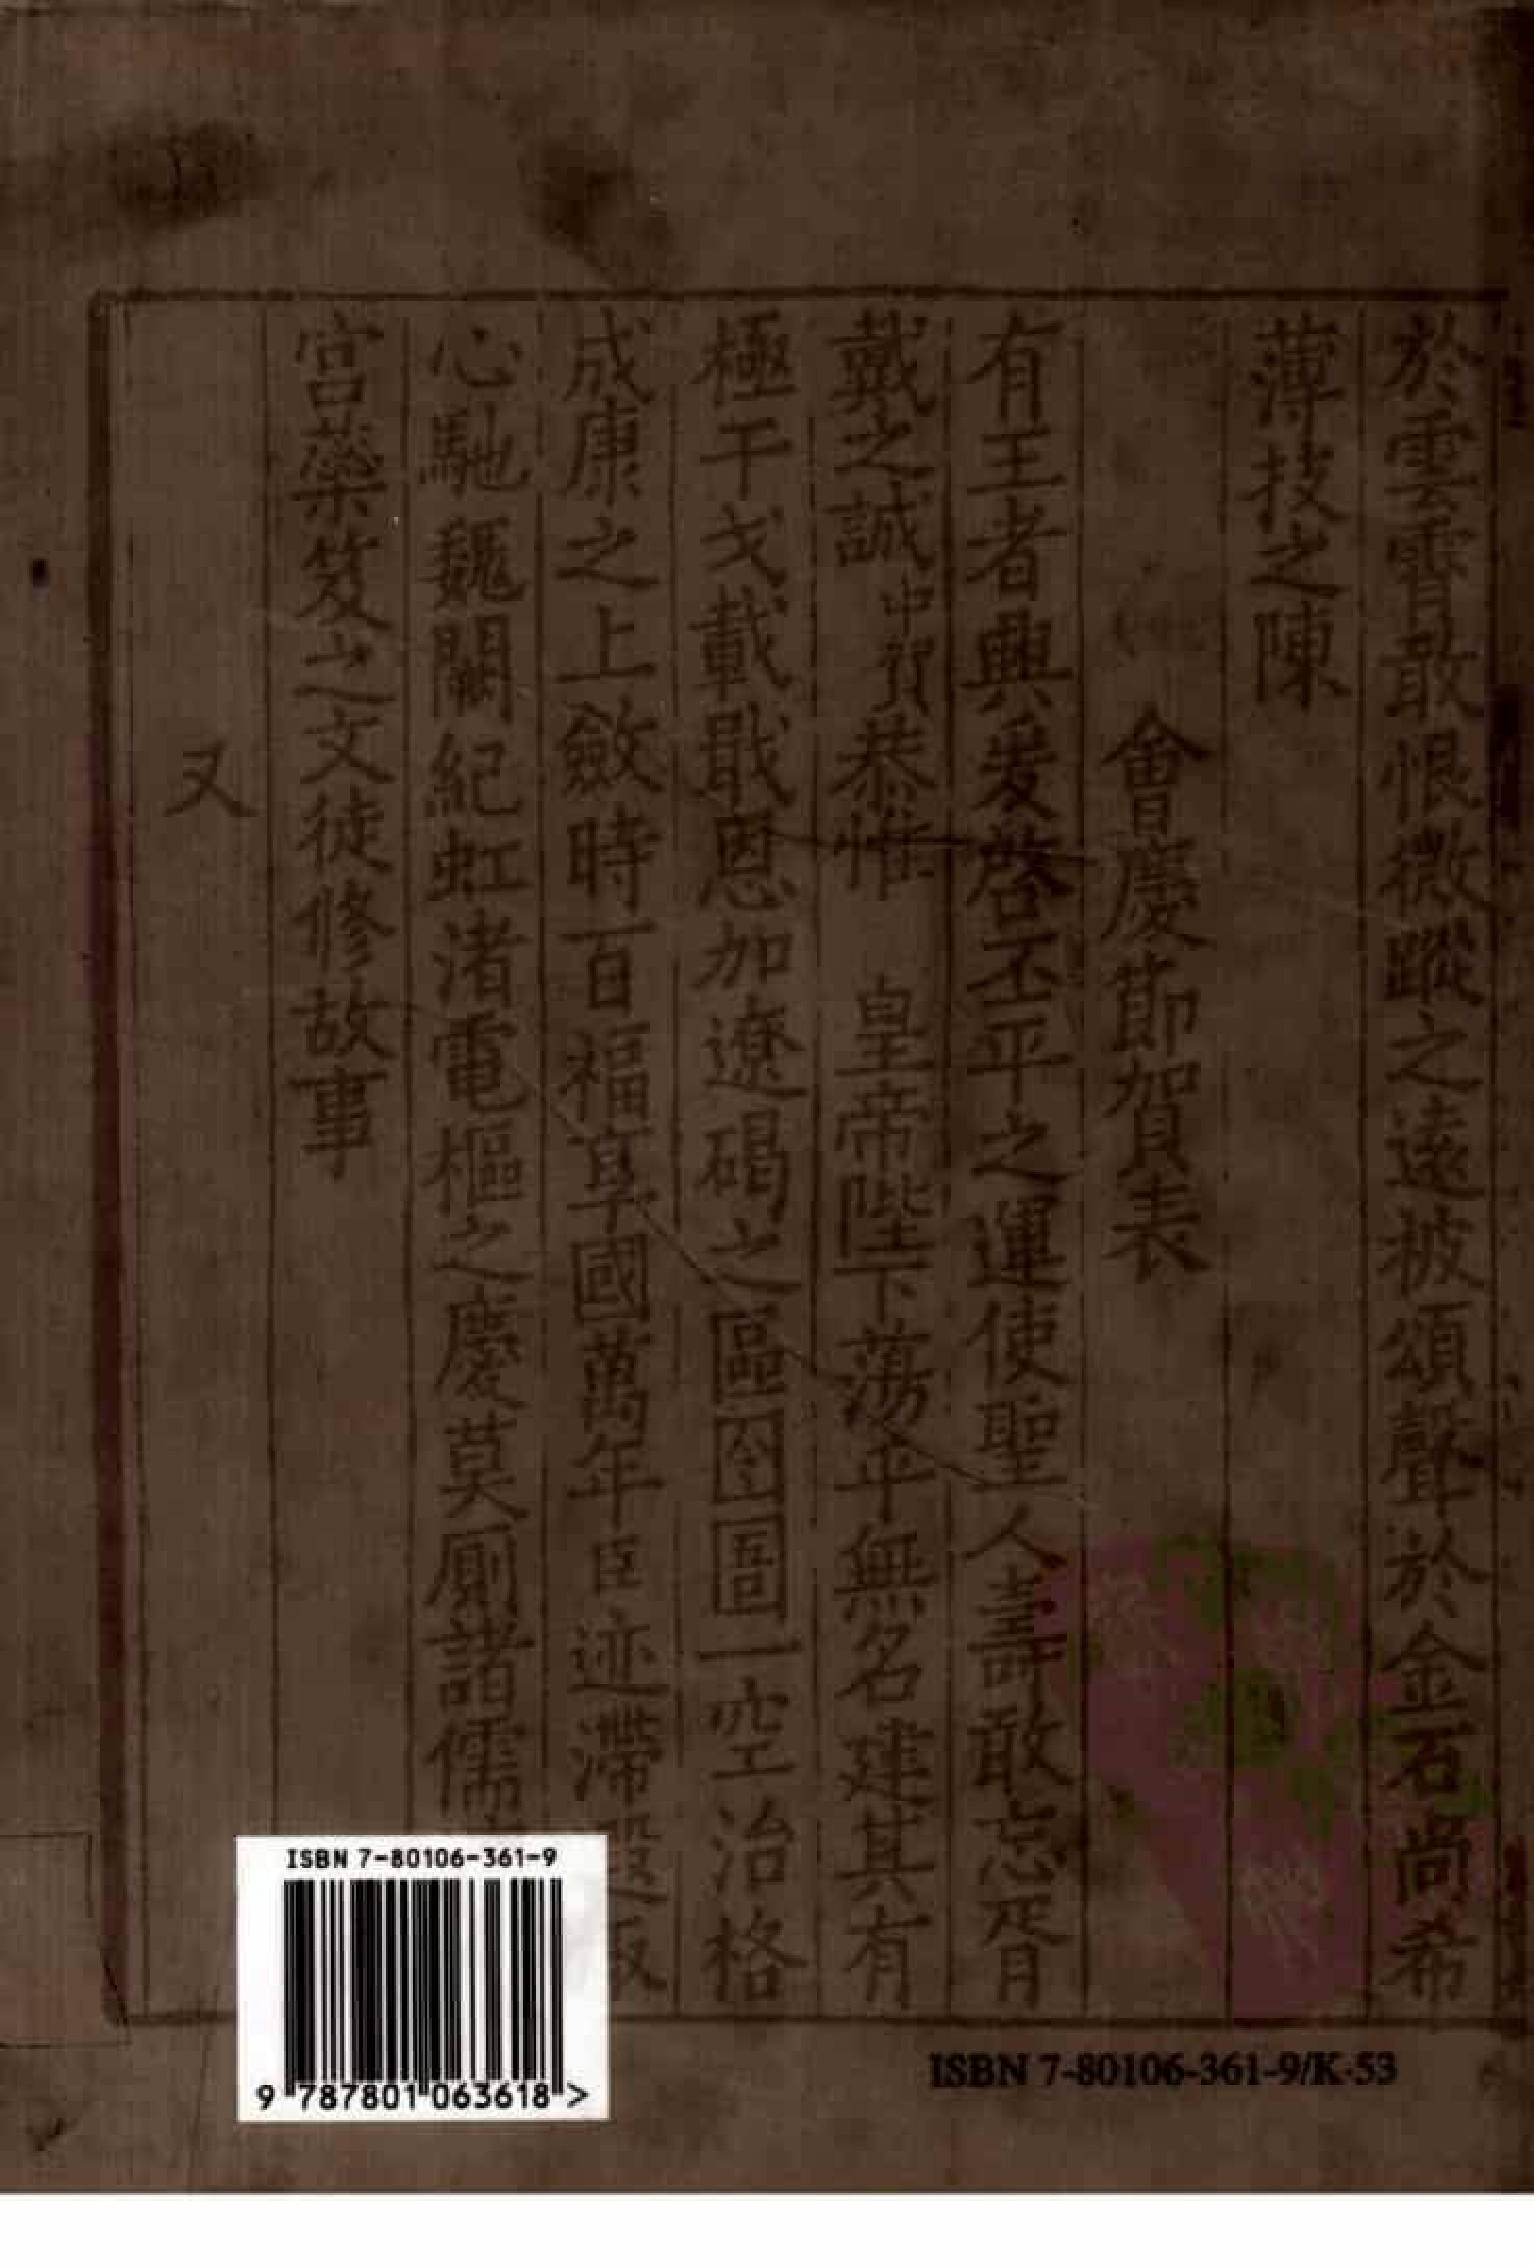 於雲霄敢恨微蹤之遠披頌聲於金石尚希
薄技之陳
會慶節賀表
有王者興爰啓丕平之運使聖人壽敢忘胥
戴之誠中賀恭惟 皇帝陛下蕩乎無名建其有
極干戈載戢恩加遼碣之區囹圄一空治格
成康之上斂時百福享國萬年臣迹滯
心馳魏闕紀虹渚電樞之慶莫厠諸儒
宫蘂笈之文徒修故事
又
ISBN 7-80106-361-9
9 787801 063618 >
ISBN 7-80106-361-9/K·53